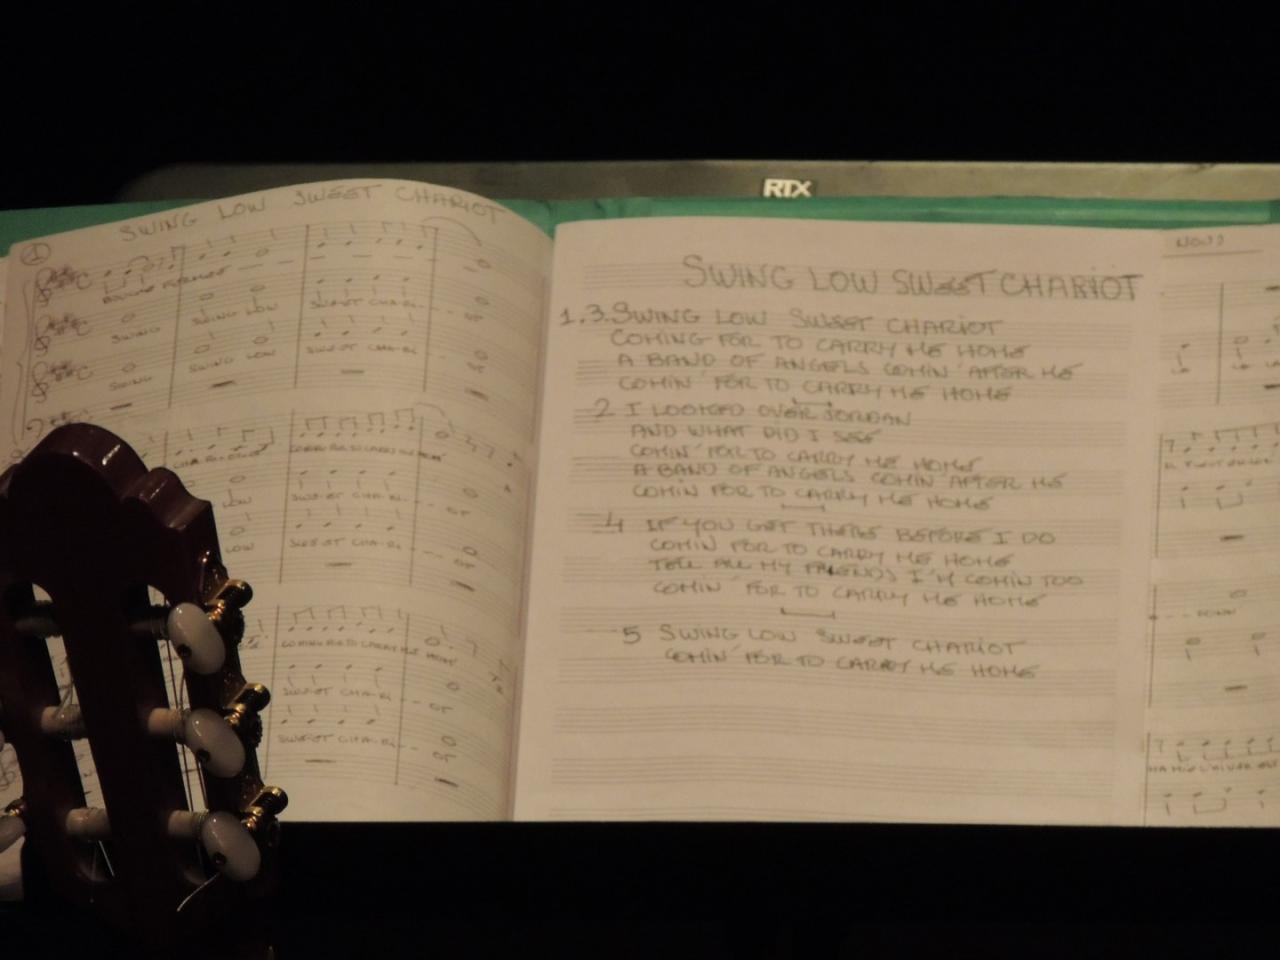 RTX
SWING LOW SWEET CHARIOT
1
SWING SWING LOW SWEET CHARI-- OT
SWING SWING LOW SWEET CHARI-- OT
COMING FOR TO CARRY ME HOME
LOW SWEET CHA-RI--- OT
LOW SWEET CHA-RI--- OT
COMING FOR TO CARRY ME HOME
SWEET CHA-RI--- OT
SWEET CHA-RI--- OT
SWING LOW SWEET CHARIOT
1.3. SWING LOW SWEET CHARIOT
COMING FOR TO CARRY ME HOME
A BAND OF ANGELS COMIN' AFTER ME
COMIN' FOR TO CARRY ME HOME
2 I LOOKED OVER JORDAN
AND WHAT DID I SEE
COMIN' FOR TO CARRY ME HOME
A BAND OF ANGELS COMIN' AFTER ME
COMIN FOR TO CARRY ME HOME
4 IF YOU GET THERE BEFORE I DO
COMIN FOR TO CARRY ME HOME
TELL ALL MY FRIENDS I'M COMIN TOO
COMIN' FOR TO CARRY ME HOME
5 SWING LOW SWEET CHARIOT
COMIN' FOR TO CARRY ME HOME